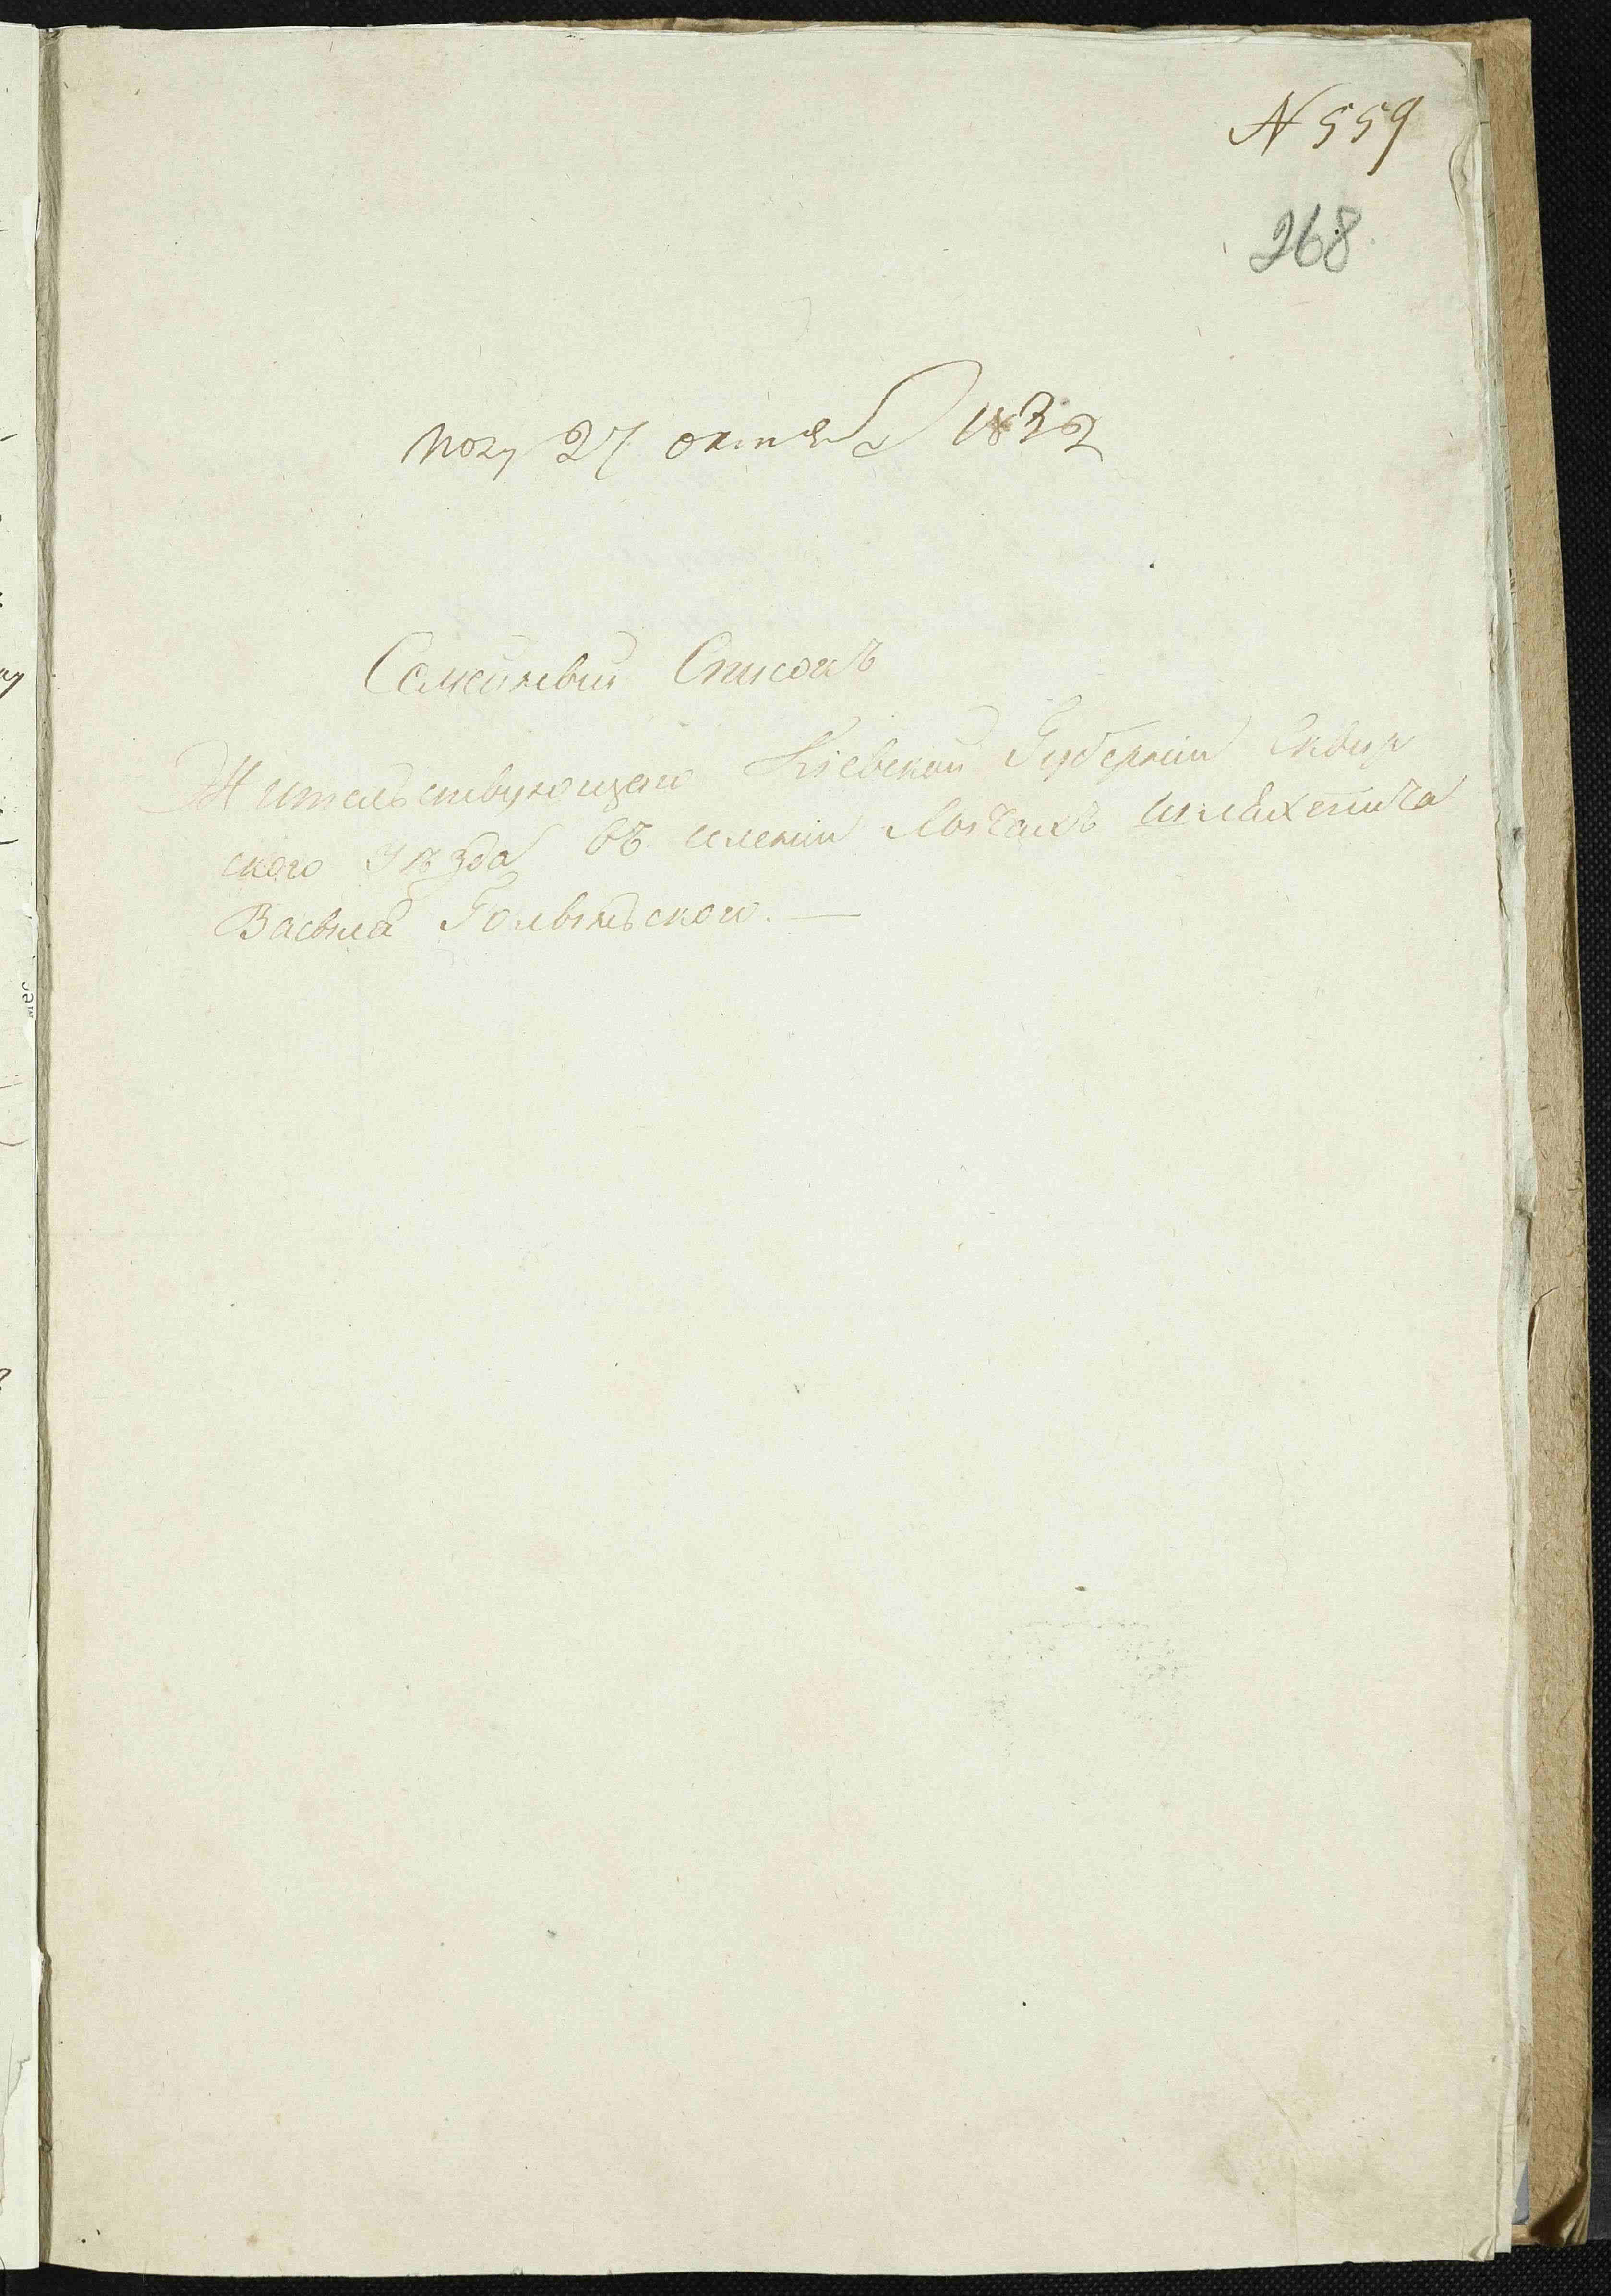 N 559
268
полу 27 октяб 1832
Семейный Списокъ
Жительствующаго Кіевской Губерніи Сквир
ского Уѣзда въ селеніи шляхтича
Васыля Голынского. —